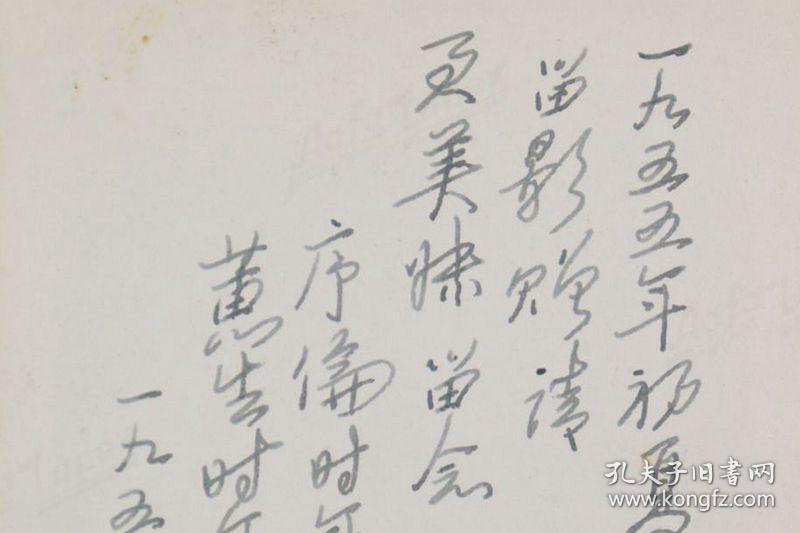 一九五五年初夏
留影赠请
美妹留念
序倫时年
蕙生时年
一九五
孔夫子旧书网
www.kongfz.com